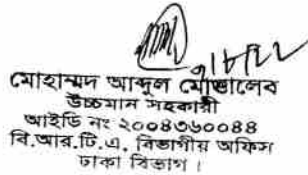 ৯/৮/২২
মোহাম্মদ আব্দুল মোত্তালেব
উচ্চমান সহকারী
আইডি নং ২০০৪৩৬০০৪৪
বি.আর.টি.এ, বিভাগীয় অফিস
ঢাকা বিভাগ।